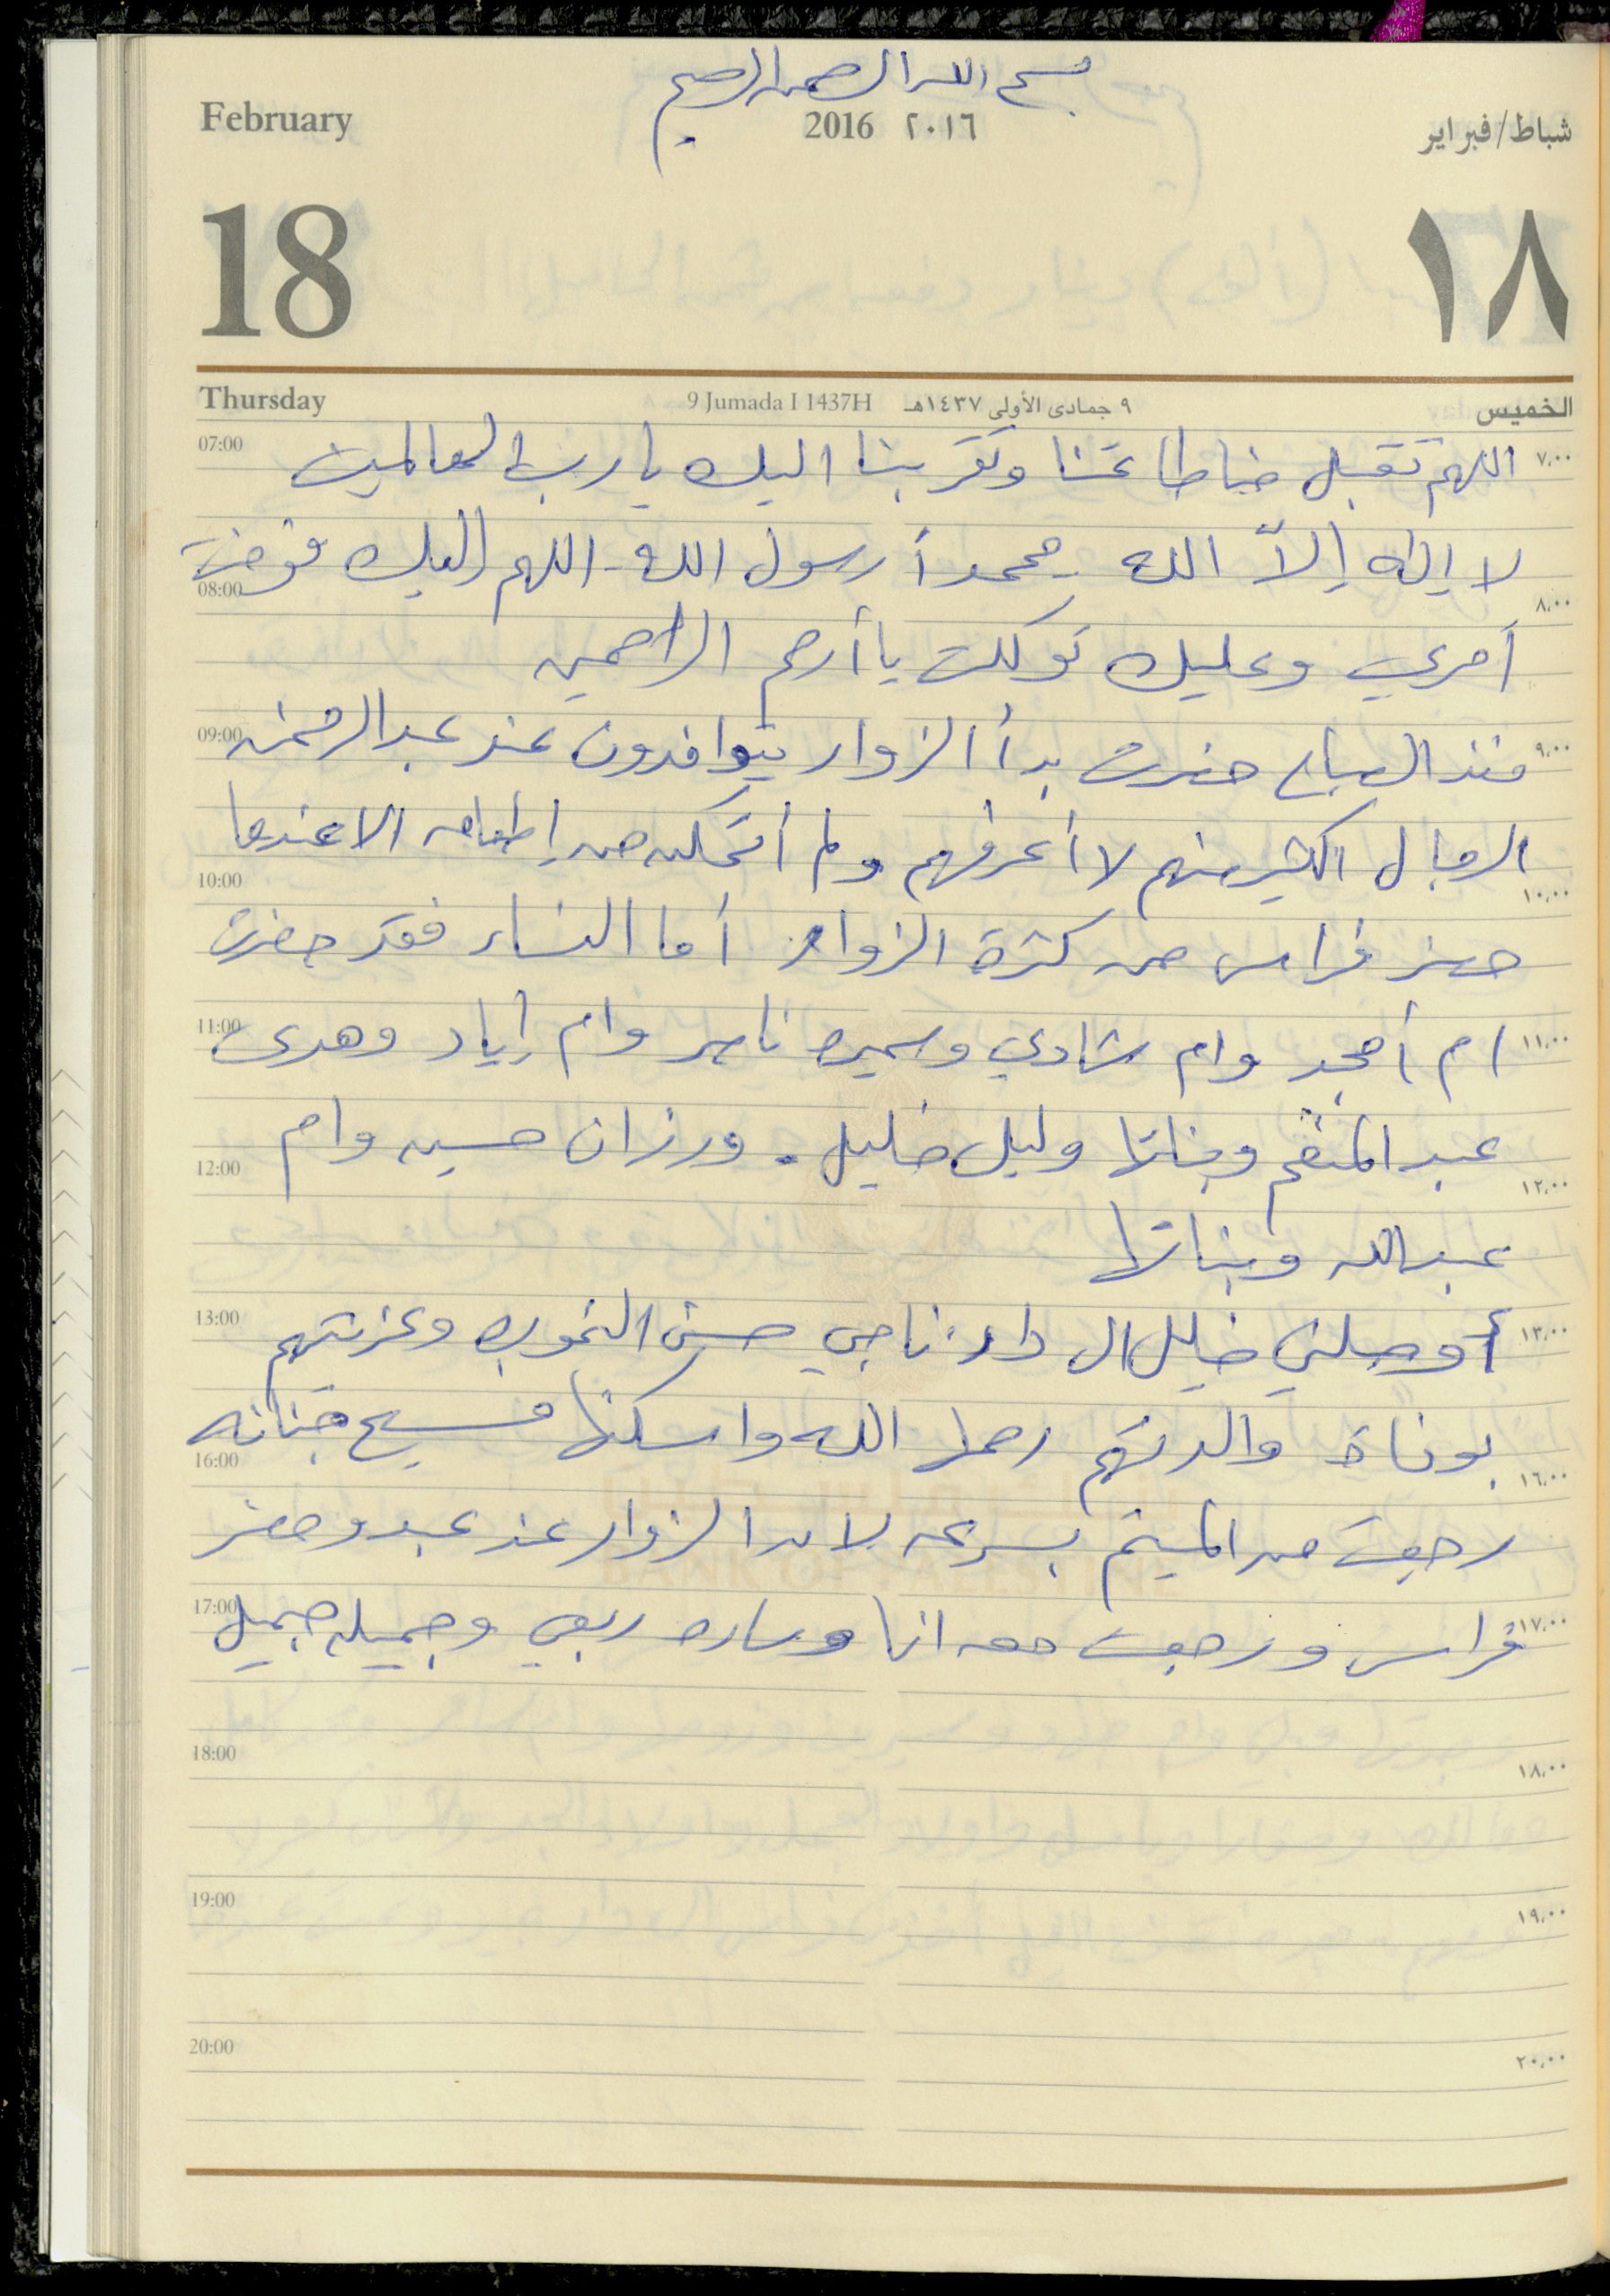 بسم الله الرحمن الرحيم
February 2016 ٢٠١٦ شباط/فبراير
18 ١٨
Thursday 9 Jumada I 1437H ٩ جمادى الأولى ١٤٣٧هـ الخميس
07:00 اللهم تقبل منا طاعتنا وتقربنا اليك يا رب العالمين ٧,٠٠
لا إله إلاّ الله محمداً رسول الله - اللهم إليك فوضت
08:00 ٨,٠٠
أمري وعليك توكلت يا أرحم الراحمين
09:00 منذ الصباح حضرت بدأ الزوار يتوافدون عند عبد الرحمن ٩,٠٠
الرجال الكثير منهم لا أعرفهم ولم أتمكن من إطعامه الا عندما
10:00 ١٠,٠٠
حضر فراس من كثرة الزوار أما النساء فقد حضرت
11:00 ام أمجد وام شادي وسميره ناصر وام إياد وهدى ١١,٠٠
عبد المنعم وبناتها وليل خليل . ورزان حسين وام
12:00 ١٢,٠٠
عبد الله وبناتها
13:00 أوصلني خليل ال دار ناجي حسن النموره وعزيتهم ١٣,٠٠
بوفاة والدتهم رحمها الله واسكنها فسيح جنانه
16:00 ١٦,٠٠
رجعت من الميتم بسرعه لا بد الزوار عند عبد وحضر
17:00 فراس ورجعت معه انا وساره ربعي وجميله جميل ١٧,٠٠
18:00 ١٨,٠٠
19:00 ١٩,٠٠
20:00 ٢٠,٠٠
BANK OF PALESTINE